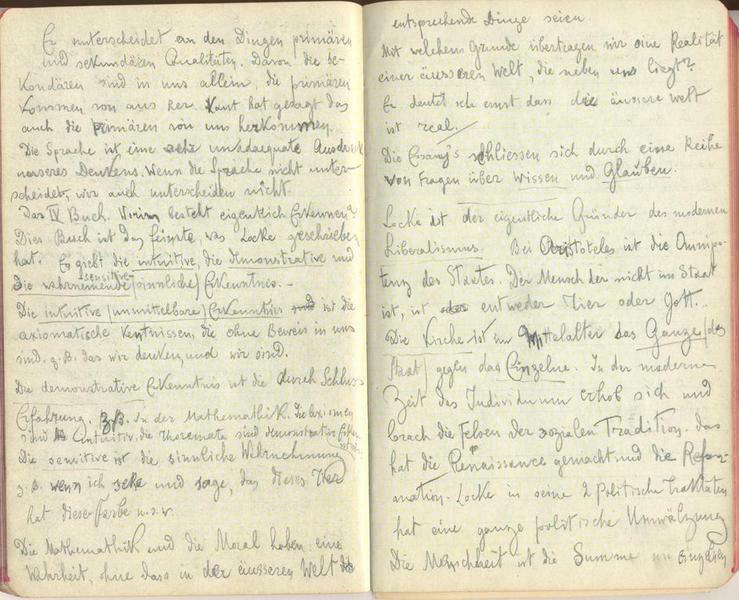 Er unterscheidet an den Dingen primären
und sekundären Qualitäten. Davon die se-
kondären sind in uns allein, die primären
kommen von aus her. Kant hat gesagt das
auch die primären von uns herkommen.
Die Sprache ist eine sehr unadaequate Ausdruck
unseres Denkens. Wenn die Sprache nicht unter-
scheidet, wir auch unterscheiden nicht.
Das IV Buch. Worin besteht eigentlich Erkennen?
Dies Buch ist das feinste, was Locke geschrieben
hat. Es giebt die intuitive, die demonstrative und
sensitive
die wahrnemende (sinnliche) Erkenntnis.-
Die intuitive (unmittelbare) Erkenntnis ist die
axiomatische Kentnissen, die ohne Beweis in uns
sind. z.B. das wir denken, und wir sind.
Die demonstrative Erkenntnis ist die durch Schluss
Erfahrung. z.B. In der Mathemathik. die axiomen
sind intuitiv, die Theoremata sind demonstrative
Die sensitive ist die sinnliche Wahrnehmung
z.B. wenn ich sehe und sage, das dieses
hat diese Farbe u.s.w.
Die Mathemathik und die Moral haben eine
Wahrheit, ohne dass in der äusseren Welt
entsprechende Dinge seien.
Mit welchem Grunde übertragen wir eine Realität
einer äusseren Welt, die neben uns liegt?
Er denkt sich ernst dass die äussere Welt
ist real.
Die Essay's schliessen sich durch eine Reihe
von Fragen über Wissen und Glauben.
Locke ist der eigentliche Gründer des modernen
Liberalismus. Bei Aristoteles ist die Omnipo-
tenz des Staates. Der Mensch der nicht im Staat
ist, ist entweder Tier oder Gott..
Die Kirche ist im Mittelalter das Ganze (des
Staat) gegen das Einzelne. In der moderne
Zeit das Individuum erhob sich und
brach die Felsen der sozialen Tradition. das
hat die Renaissance gemacht und die Refor-
mation. Locke in seine 2 Politische Traktaten
hat eine ganze politische Umwälzung
Die Menschheit ist die Summe von einzelnen